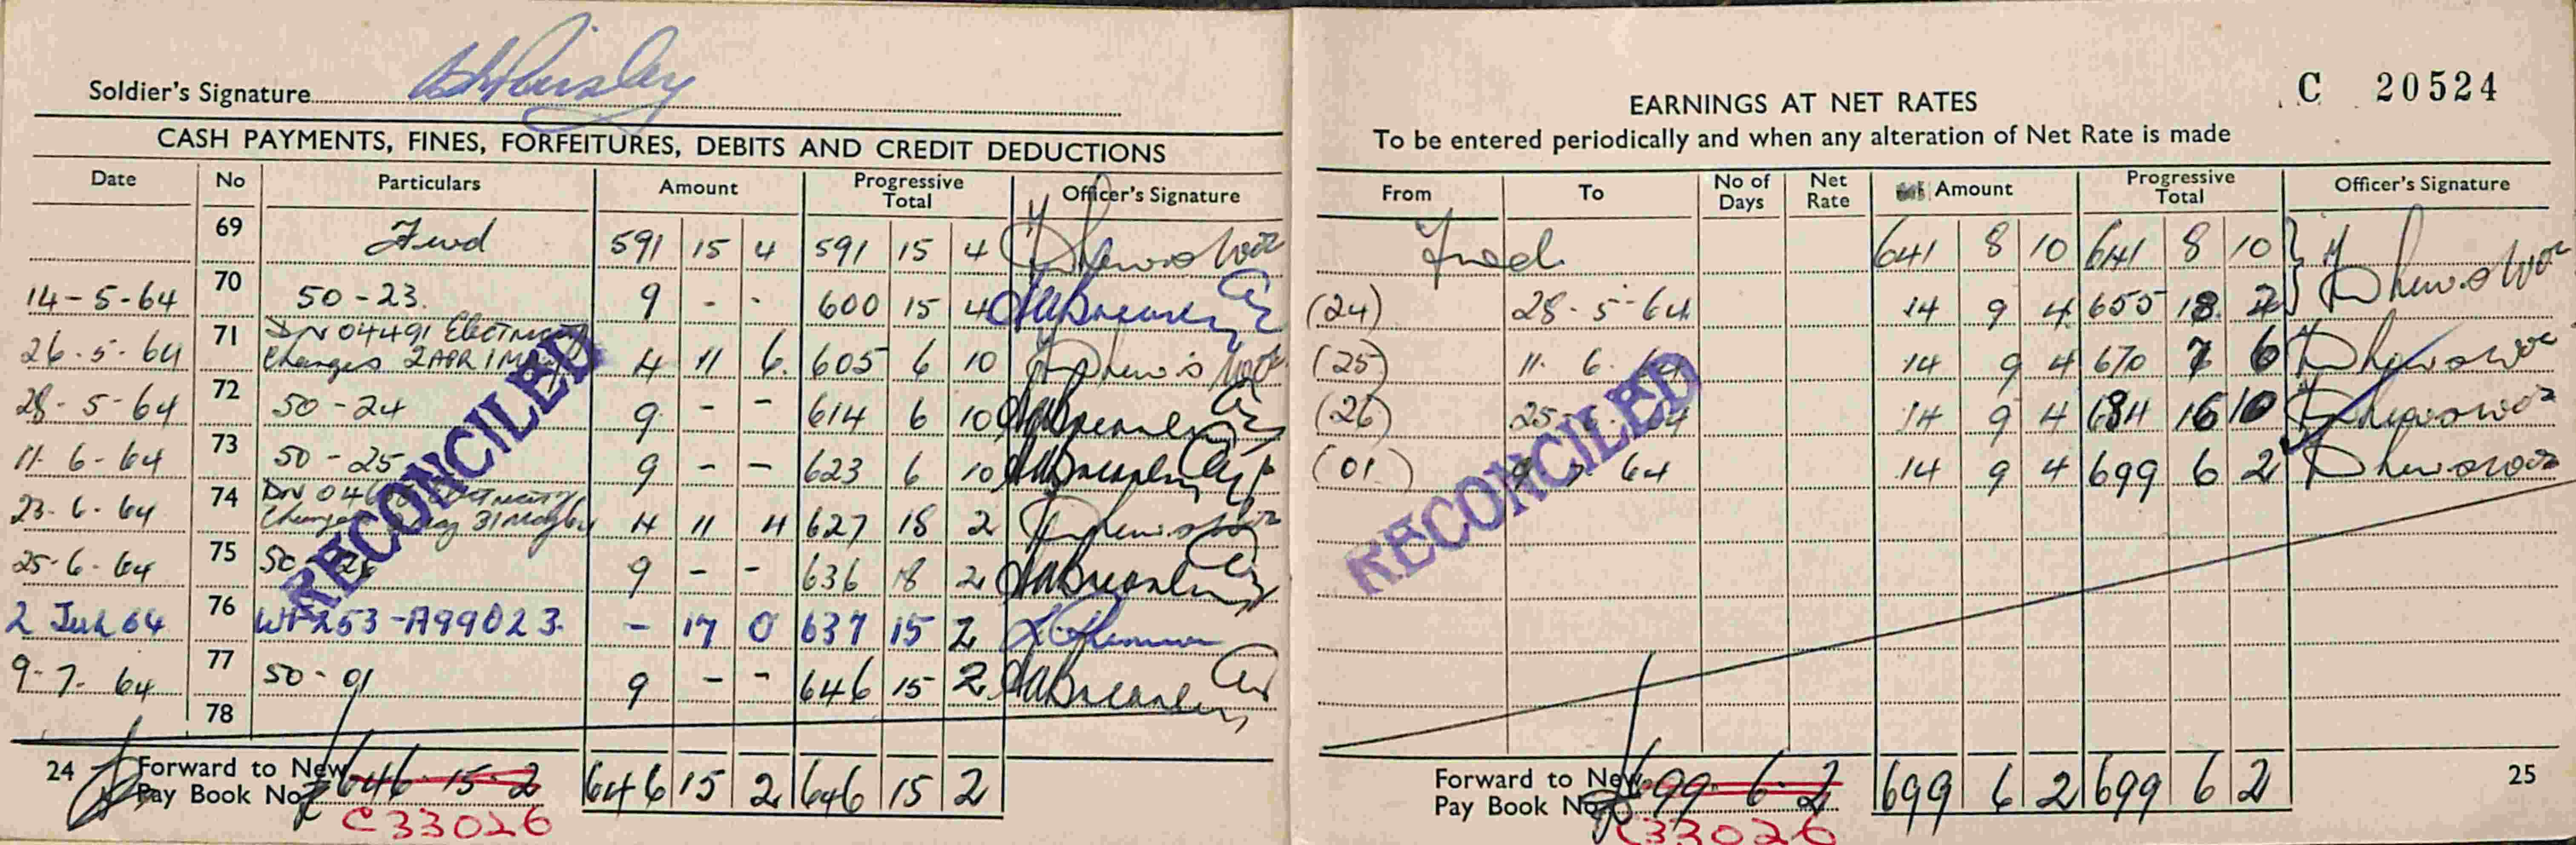 Soldier's Signature
CASH PAYMENTS, FINES, FORFEITURES, DEBITS AND CREDIT DEDUCTIONS
Date No Particulars Amount Progressive Total Officer's Signature
69 Fwd 591 15 4 591 15 4
14-5-64 70 50-23. 9 - - 600 15 4
26.5.64 71 DN 04491 Electricity Charges 2 APR 1 May 4 11 6. 605 6 10
28-5-64 72 50-24 9 - - 614 6 10
11.6-64 73 50-25 9 - - 623 6 10
23.6.64 74 DN 31 May 64 4 11 4 627 18 2
25-6-64 75 50 26 9 - - 636 18 2
2 Jul 64 76 253-A99023. - 17 0 637 15 2
9-7-64 77 50-01 9 - - 646 15 2
78
24 Forward to New Pay Book No 646-15-2 646 15 2 646 15 2
C33026
C 20524
EARNINGS AT NET RATES
To be entered periodically and when any alteration of Net Rate is made
From To No of Days Net Rate Amount Progressive Total Officer's Signature
Fwd 641 8 10 641 8 10
(24) 28-5-64 14 9 4 655 18 2
(25) 11. 6. 64 14 9 4 670 7 6
(26) 25 64 14 9 4 684 16 10
(01) 9 7 64 14 9 4 699 6 2
RECONCILED
RECONCILED
Forward to New Pay Book No 699-6-2 699 6 2 699 6 2
C33026
25